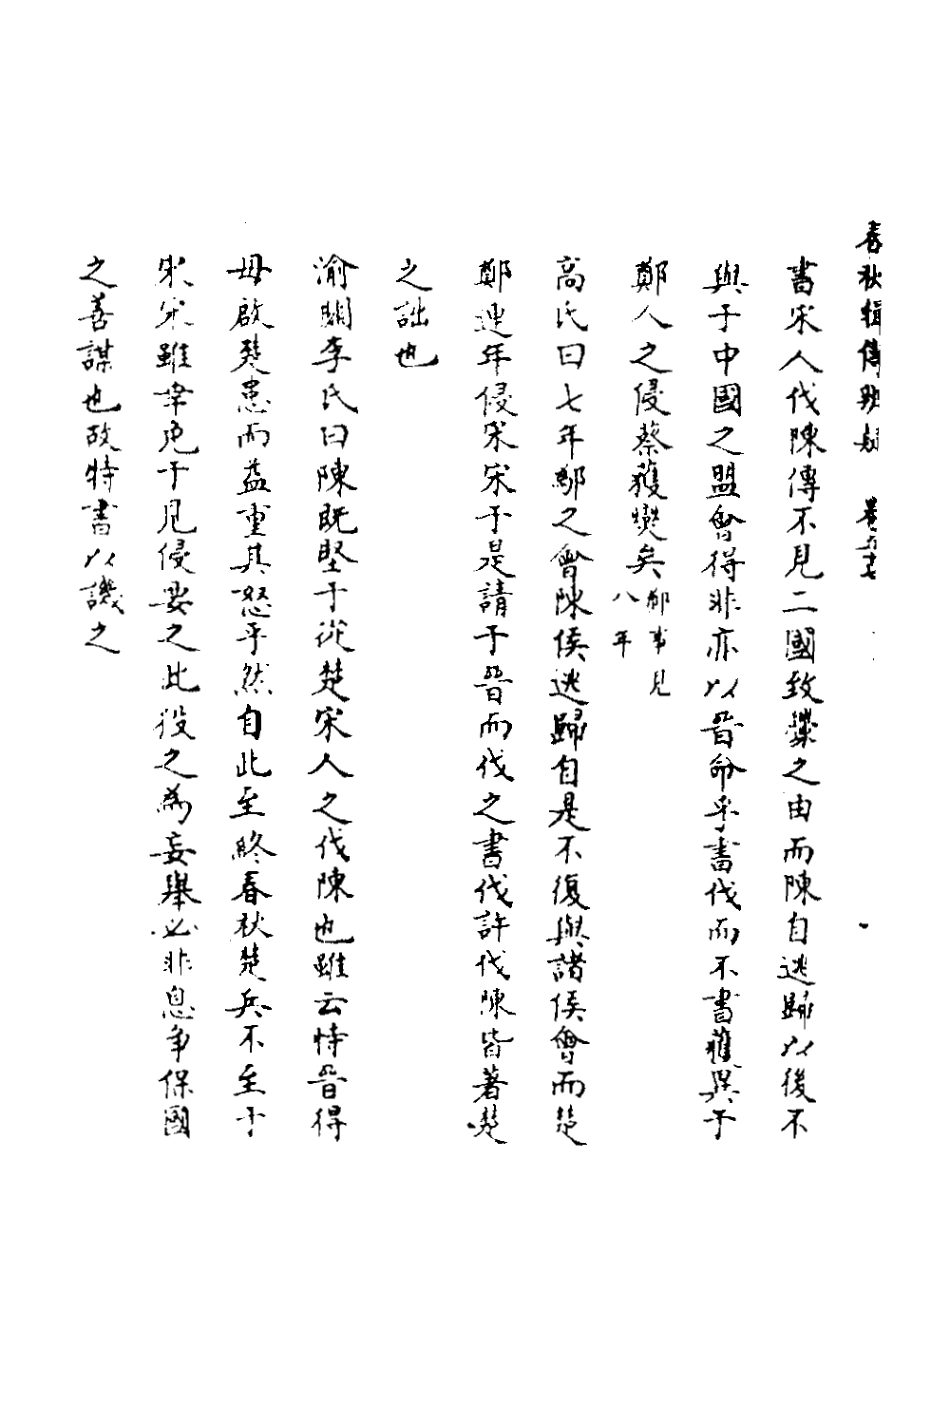 春秋輯傳辨疑　卷五十七
書宋人伐陳傳不見二國致釁之由而陳自逃歸以後不
與于中國之盟會得非亦以晉命乎書伐而不書獲異于
鄭人之侵蔡獲燮矣鄭事見八年
高氏曰七年鄬之會陳侯逃歸自是不復與諸侯會而楚
鄭連年侵宋宋于是請于晉而伐之書伐許伐陳皆著楚
之詘也
渝關李氏曰陳既堅于從楚宋人之伐陳也雖云恃晉得
毋啟楚患而益重其怒乎然自此至終春秋楚兵不至于
宋宋雖幸免于見侵要之此役之為妄舉必非息爭保國
之善謀也故特書以譏之